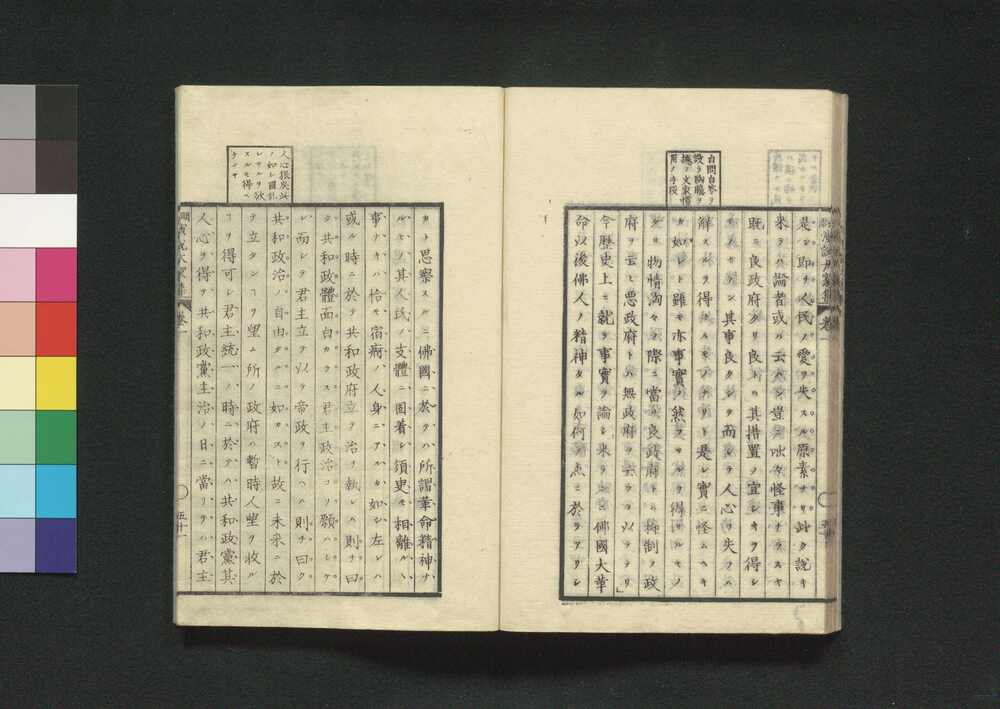 自問自答ヲ
設ケ胸臆ヲ
攄フ文家慣
用ノ手段
是レ即ヲ人民ノ愛ヲ失スル原素ナリ此ク説キ
來ラハ論者或ハ云ハン豈咄々怪事ナラスヤ
既ニ良政府タリ良トハ其措置ノ宜シキヲ得レ
ハナラン其事良クシテ而シテ人心ヲ失フハ
解スルヲ得ルモノナリト是レ實ニ怪ムヘキ
カ如シト雖モ亦事實ノ然ラサルヲ得サルモノ
タリ物情洶々ノ際ニ當リ良政府トハ抑制ノ政
府ヲ云ヒ悪政府トハ無政府ヲ云フヲ以テナリ
今歴史上ニ就テ事實ヲ論シ來ラン佛國大革
命以後佛人ノ精神タル如何ノ點ニ於ラアリレ
人心猴戾此
ノ如シ國亂
レサルヲ欲
スルモ得ヘ
ケンヤ
カヲ思察スルニ佛國ニ於テハ所謂革命精神ナ
ルモノ其人民ノ支體ニ固着シ須臾モ相離ルヽ
事ナキハ恰モ宿痾ノ人身ニアルカ如シ左レハ
或ル時ニ於テ共和政府立ヲ治ヲ執レハ則チ曰
ク共和政體面白カラス君主政治コソ願ハシケ
レ而シテ君主立テ以テ帝政ヲ行ヘハ則チ曰ク
共和政治ノ自由ナルニ如カスト故ニ未來ニ於
テ立タンコヲ望ム所ノ政府ハ暫時人望ヲ收ル
コヲ得可シ君主統一ノ時ニ於テハ共和政黨其
人心ヲ得ヲ共和政黨主治ノ日ニ當リテハ君主
卷一
五十一